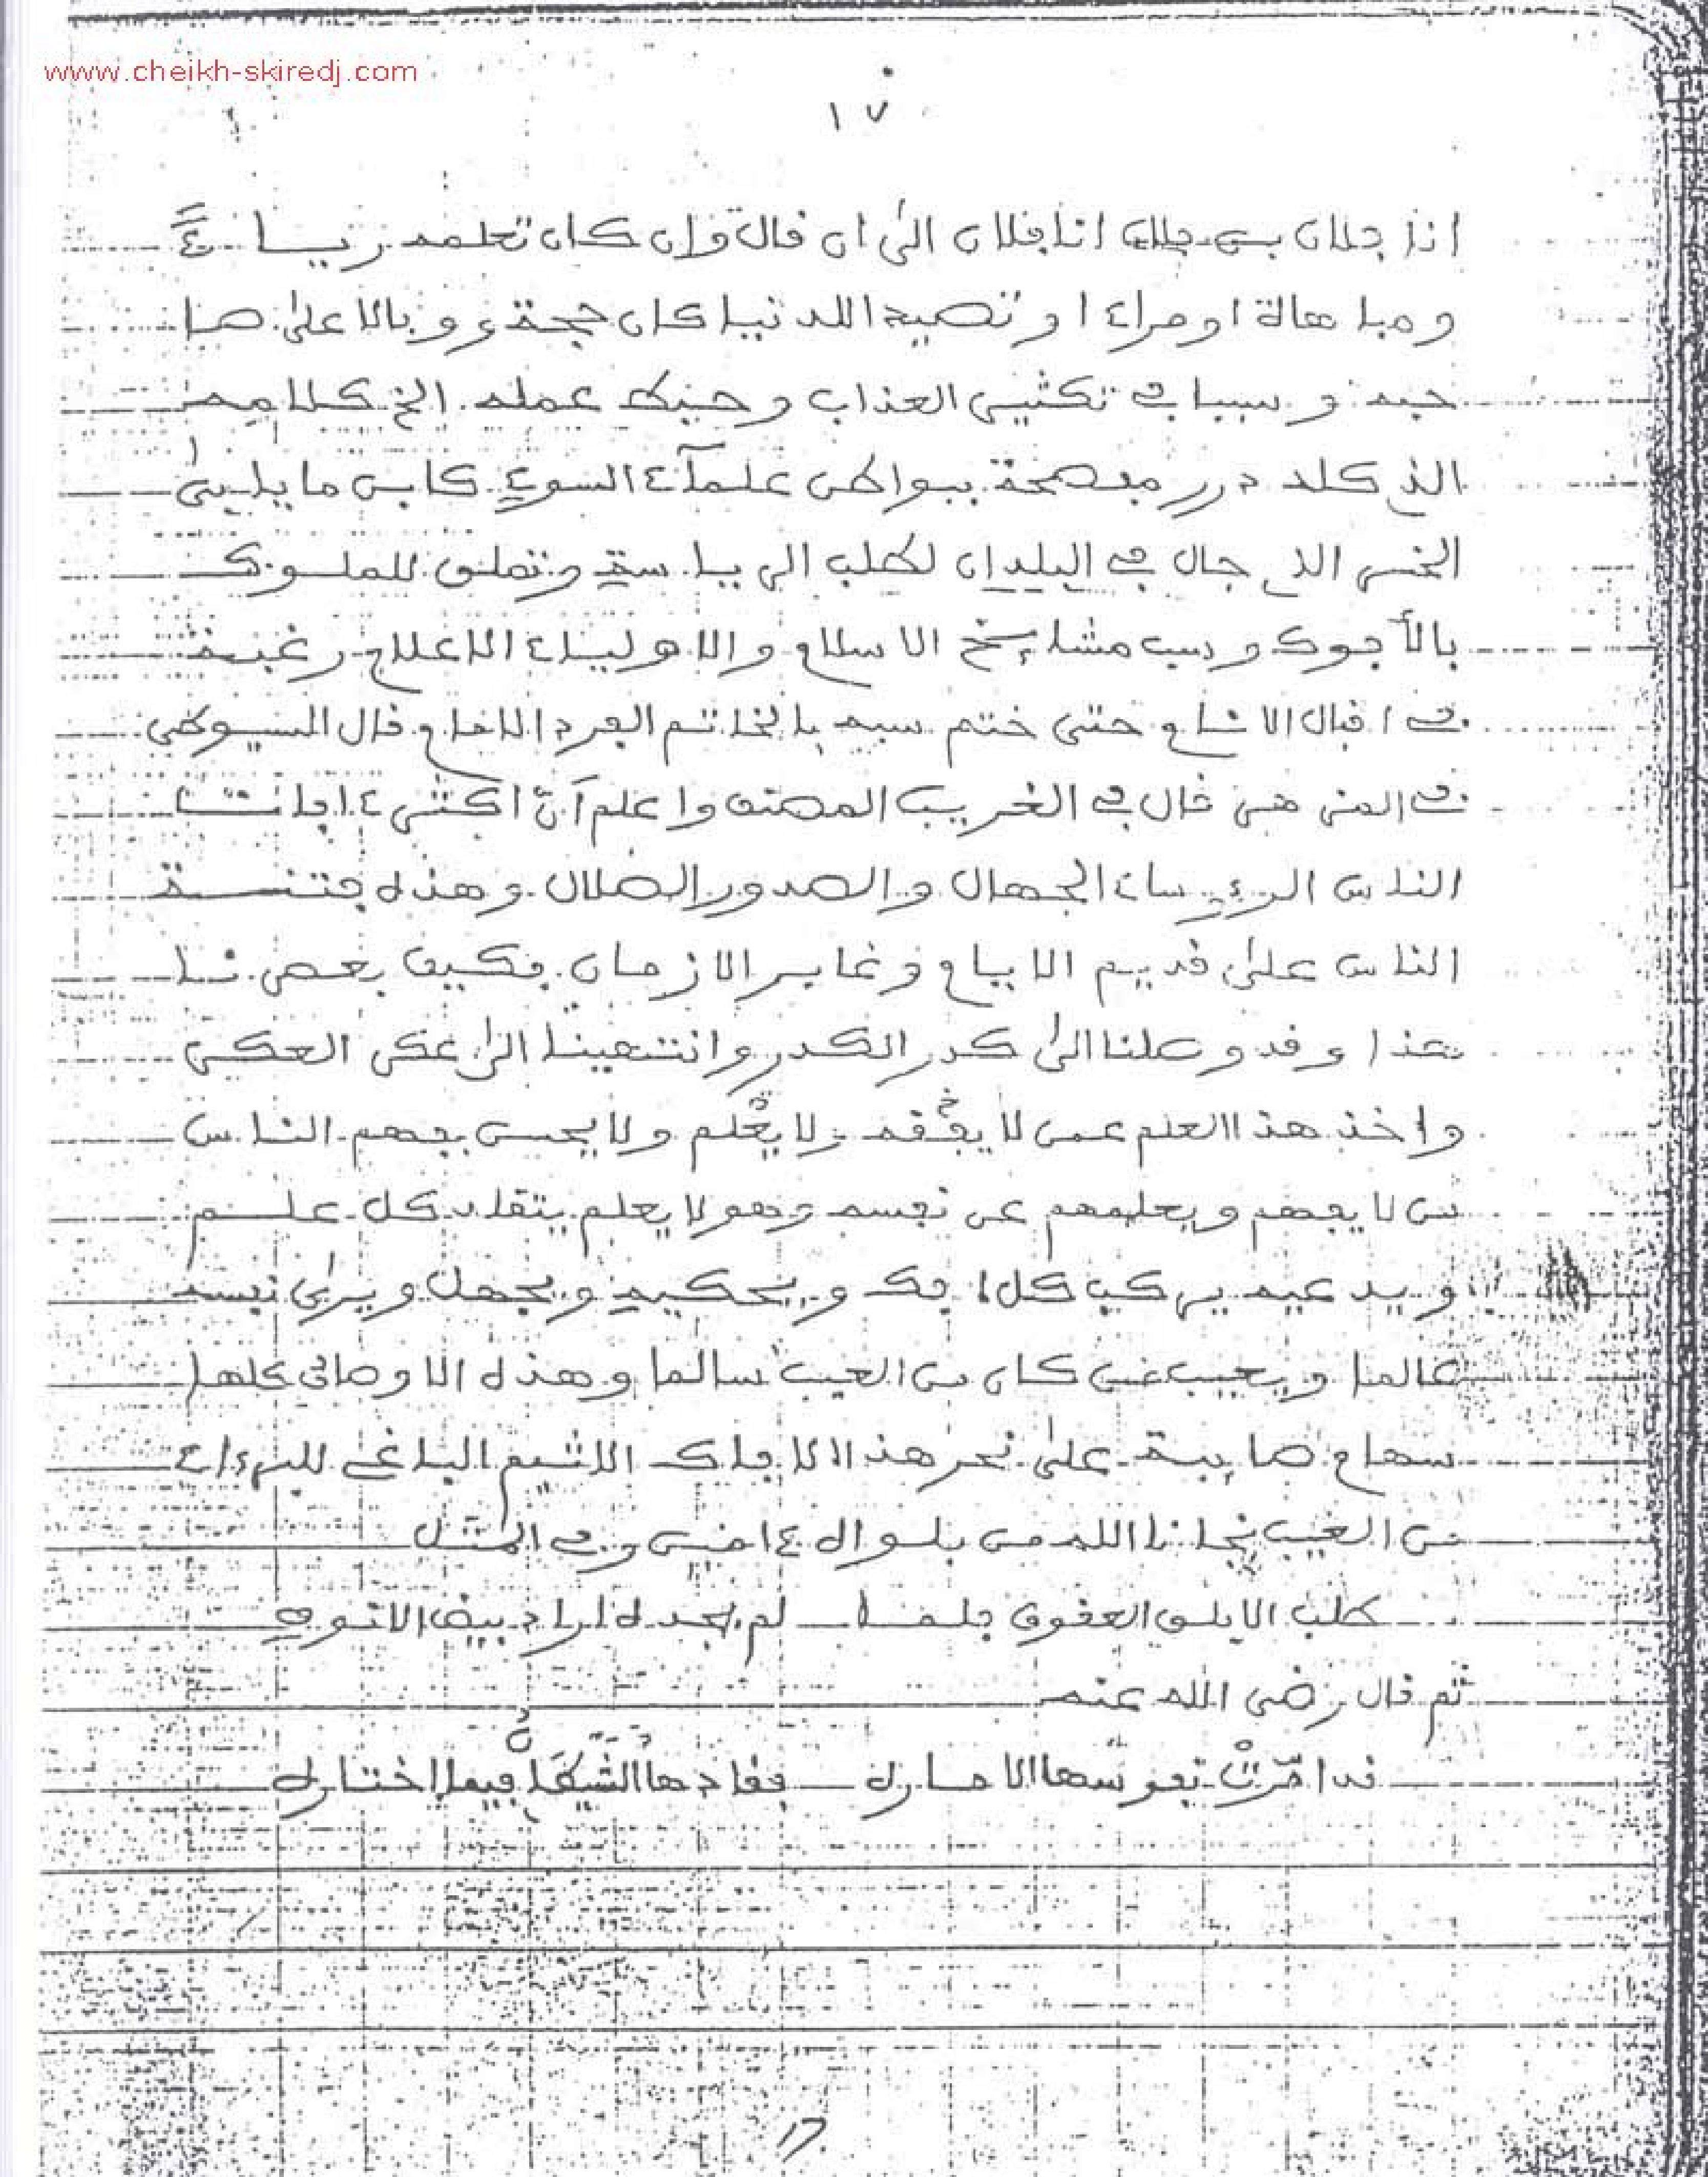 www.cheikh-skiredj.com
١٧
انا فلان بن فلان انا فلان الى ان قال وان كان تعلمه رياءً
ومباهاة او مراء او تصيدا للدنيا كان حجة ووبالا على صا
حبه وسببا في تكثير العذاب وحبط عمله الخ كلامه
الذي كله درر مفصحة ببواطن علماء السوء كابن مايابى
الخسر الذي جال في البلدان لطلب الرياسة وتملق للملوك
بالأجوك وسب مشايخ الاسلام والاولياء الاعلام رغبة
في اقبال الانام حتى ختم سبه بالخاتم الفرد قال السيوطي
في المزهر قال في الغريب المصنف واعلم أن اكثر آفات
الناس الرؤساء الجهال والصدور الضلال وهذه فتنة
الناس على قديم الايام وغابر الازمان فكيف بعصرنا
هذا وقد وصلنا الى كدر الكدر وانتهينا الى عكر العكر
واخذ هذا العلم عمن لا يفقه ولا يعلم ولا يحسن يفهم الناس
من لا يفهم ويعلمهم عن نفسه وهو لا يعلم يتقلد كل علم
ويدعيه يركب كل افك ويحكيه ويجهل ويرى نفسه
عالما ويعيب من كان من العيب سالما وهذه الاوصاف كلها
سهام صايبة على نحر هذا الافاك الاثيم الباغي للبرءاء
من العيب نجانا الله من بلواه ءامين وفي المثل
طلب الابلق العقوق فلما لم يجده اراد بيض الانوق
ثم قال رضي الله عنه
قد امّرتْ نفوسها الامارة فقادها الشيطان فيما اختاره
١٧